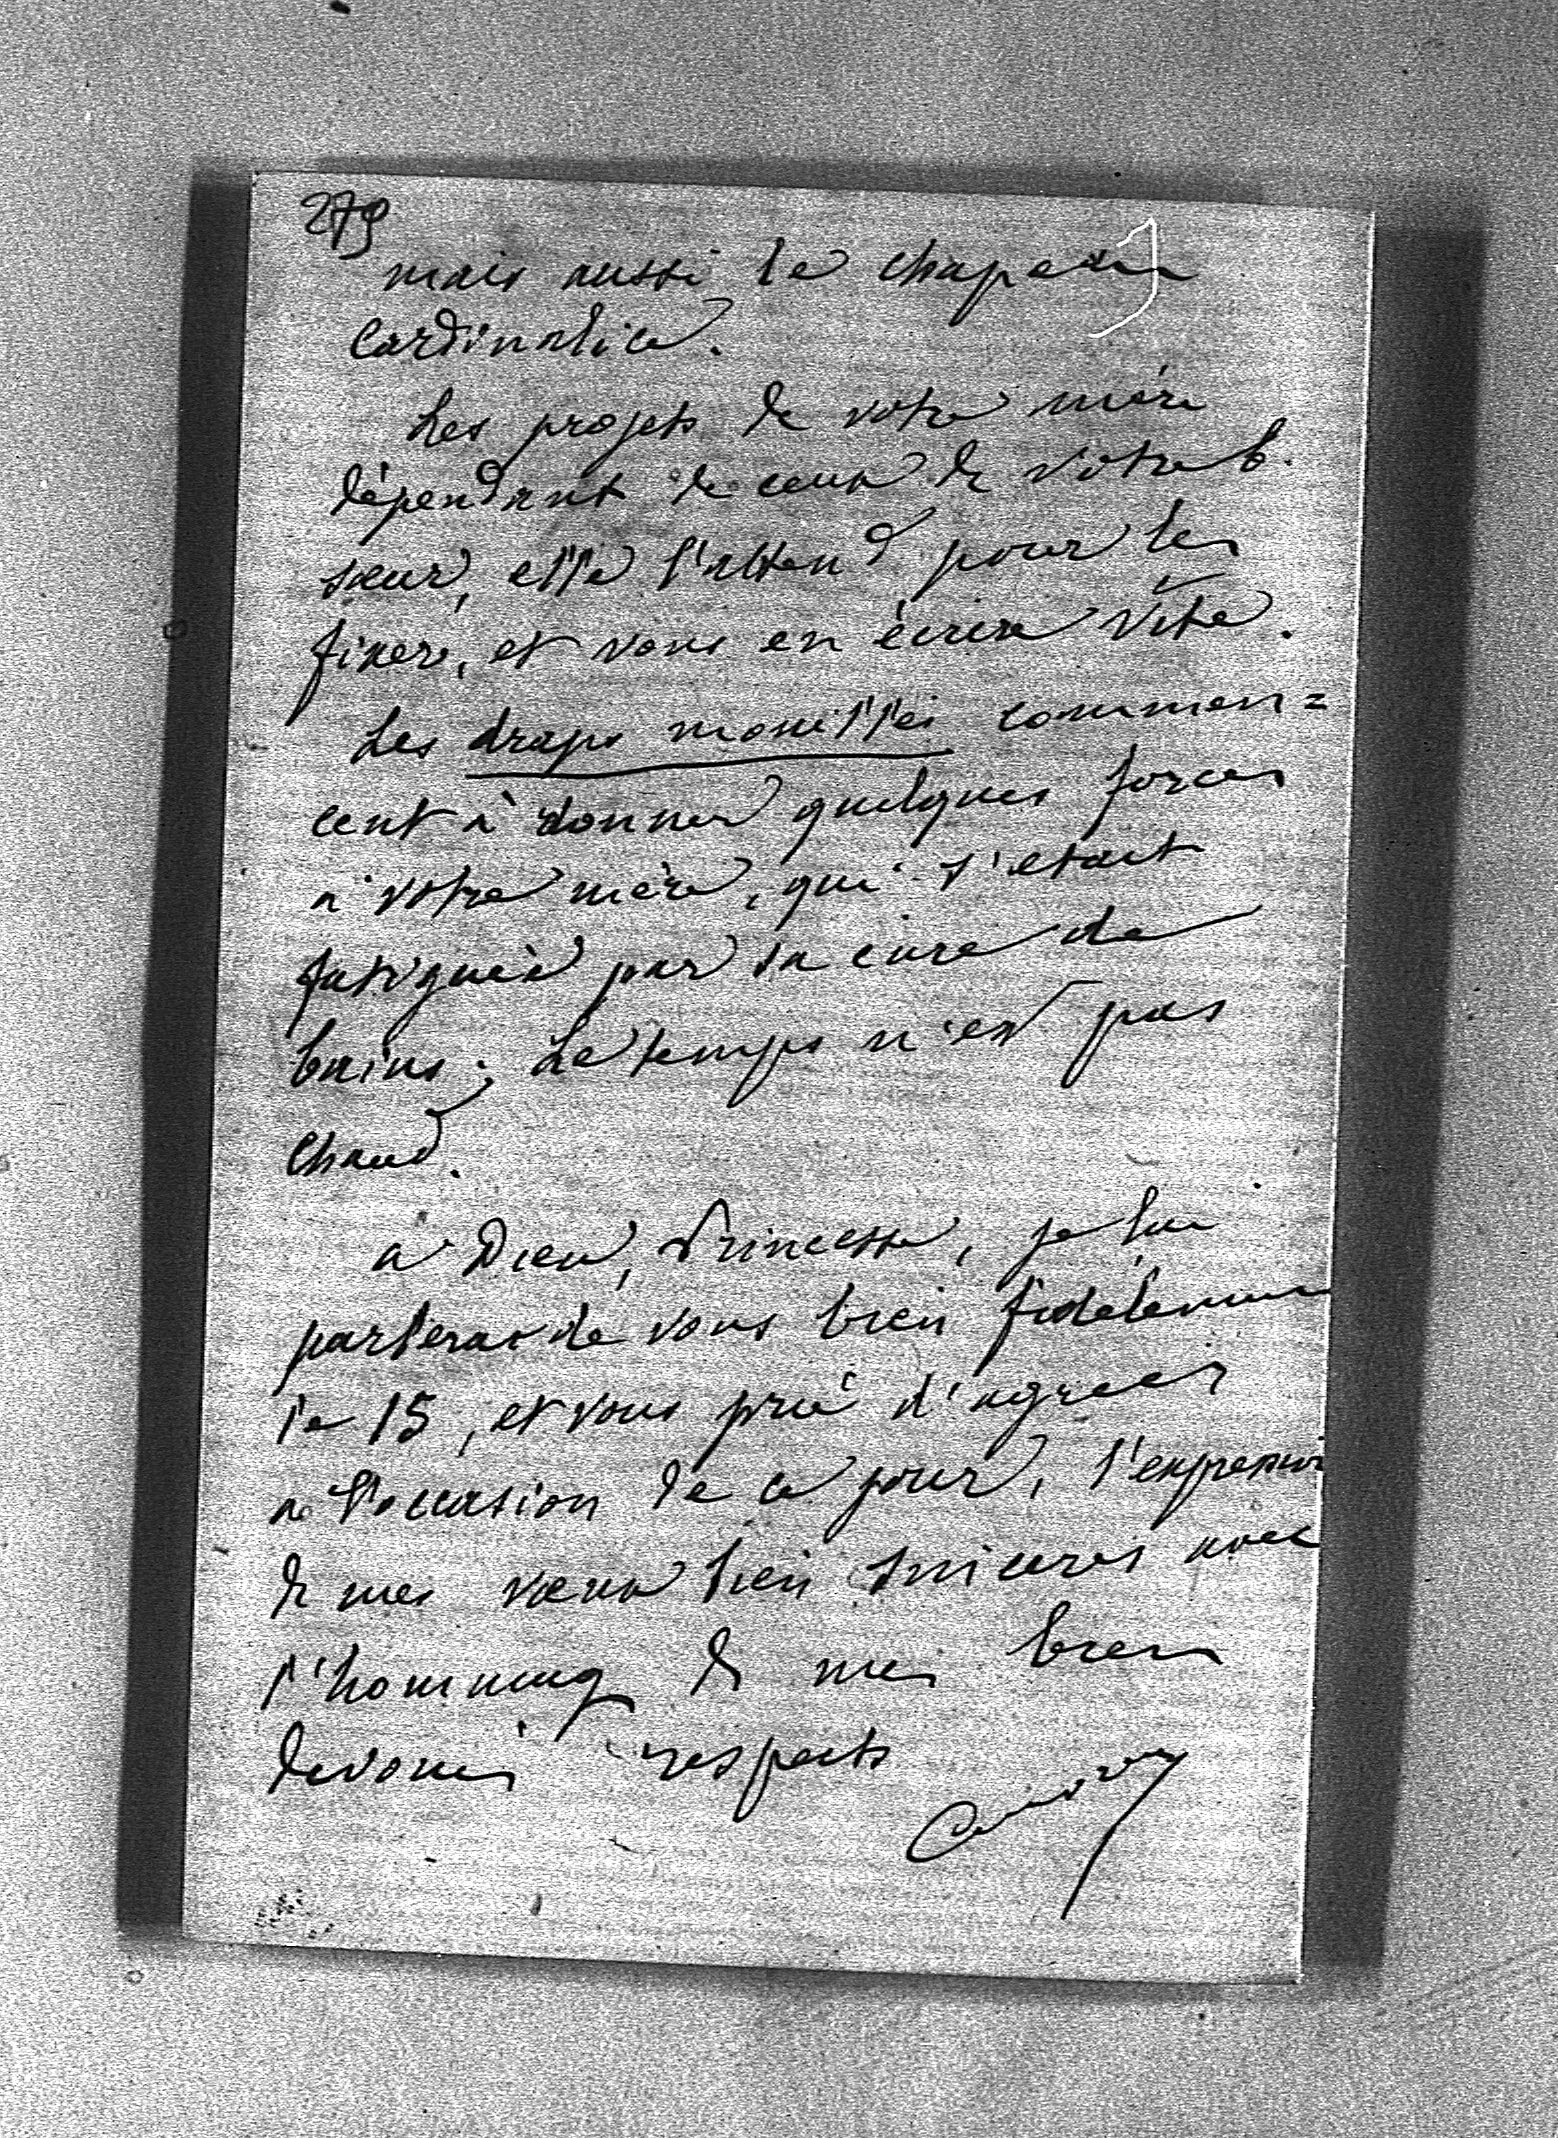 279
mais aussi le chapeau
Cardinalice.
Les projets de votre mère
dépendant de ceux de votre b.
sœur, elle l'attend pour les
fixer, et vous en écrire vite.
Les draps mouillés commen=
cent à donner quelques forces
à votre mère, qui s'était
fatiguée par sa cure de
bains; Le temps n'est pas
Chaud.
à Dieu, Princesse, je lui
parlerai de vous bien fidèlement
le 15, et vous prie d'agréer
à l'occasion de ce jour, l'expression
de mes vœux bien sincères avec
l'hommage de mes bien
dévoués respects